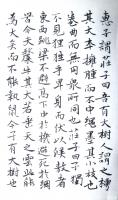 惠子謂莊子曰吾有大樹人謂之樗
其大本擁腫而不中繩墨其小枝
卷曲而無用眾所同也莊子曰獨
不見狸狌乎卑身而伏以候敖者
東西跳梁不避高下中於機辟死於罔
罟今夫斄牛其大若垂天之雲此能
為大矣而不能執鼠今子有大樹也